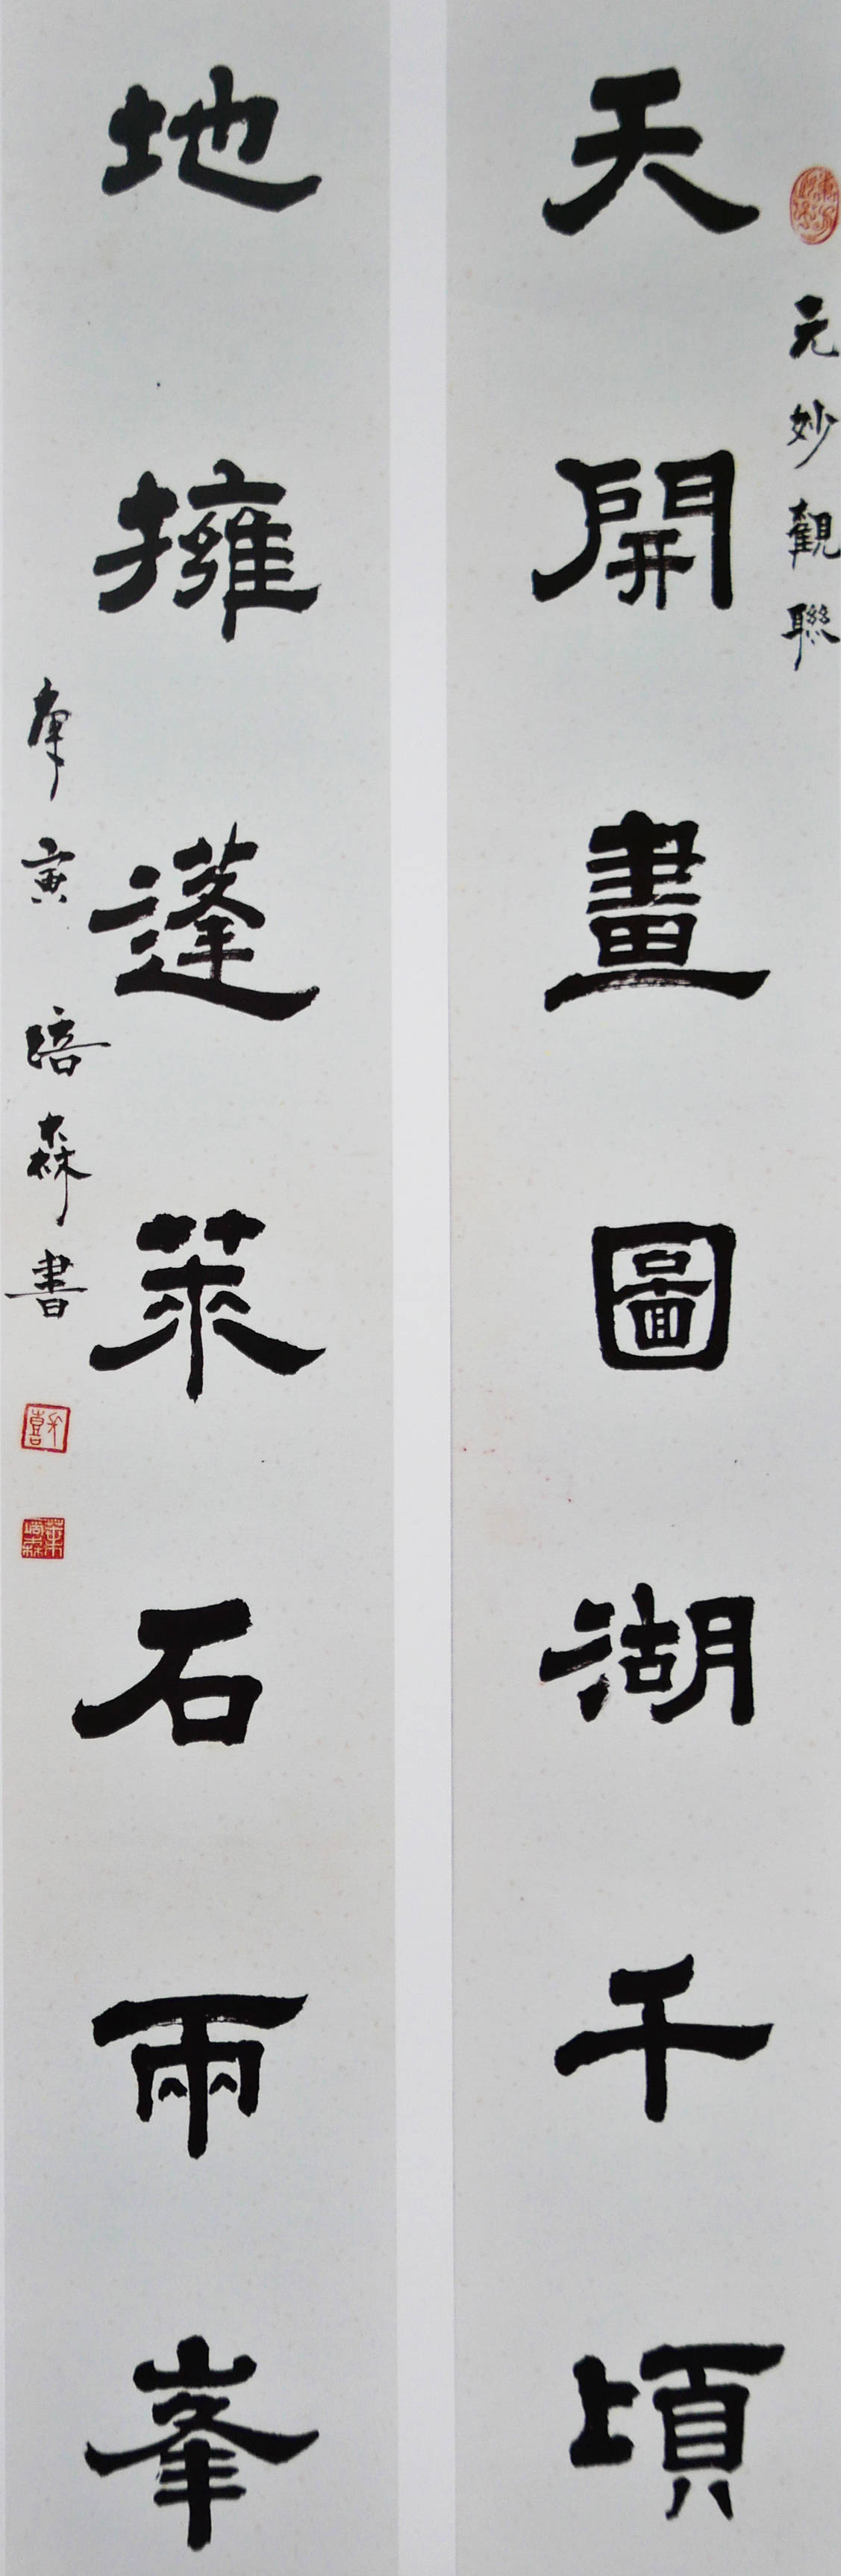 元妙觀聯
天開畫圖湖千頃
地擁蓬萊石兩峯
庚寅培森書